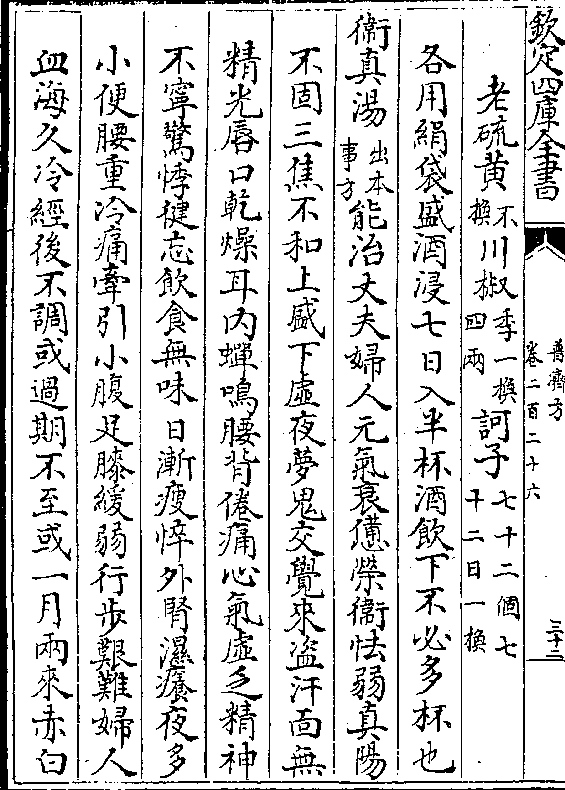 欽定四庫全書
普濟方
卷二百二十六
三十二
老硫黄不換川椒四兩季一換訶子七十二個七十二日一換
各用絹袋盛酒浸七日入半杯酒飲下不必多杯也
衞真湯出本事方能治丈夫婦人元氣衰憊榮衞怯弱真陽
不固三焦不和上盛下虛夜夢鬼交覺來盗汗面無
精光唇口乾燥耳内蟬鳴腰背倦痛心氣虛乏精神
不寧驚悸健忘飲食無味日漸瘦悴外腎濕癢夜多
小便腰重冷痛牽引小腹足膝緩弱行步艱難婦人
血海久冷經後不調或過期不至或一月兩來赤白